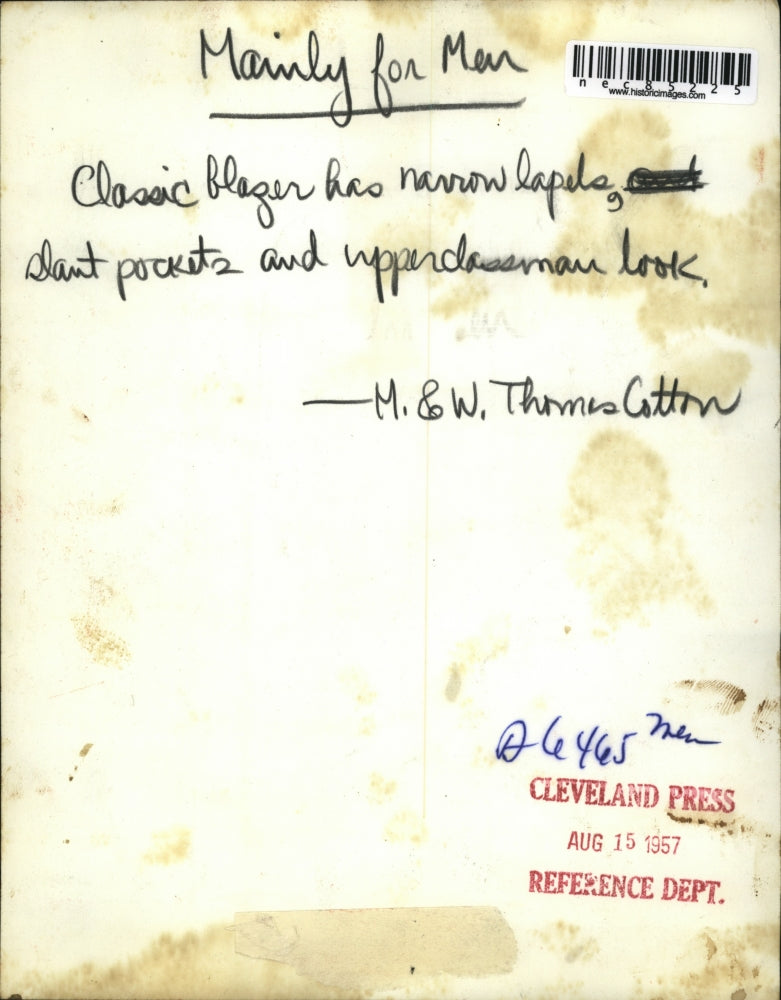 Mainly for Men
nec85225
www.historicimages.com
Classic blazer has narrow lapels,
slant pockets and upperclassman look.
—M. & W. Thomas Cotton
A6465 Men
CLEVELAND PRESS
AUG 15 1957
REFERENCE DEPT.